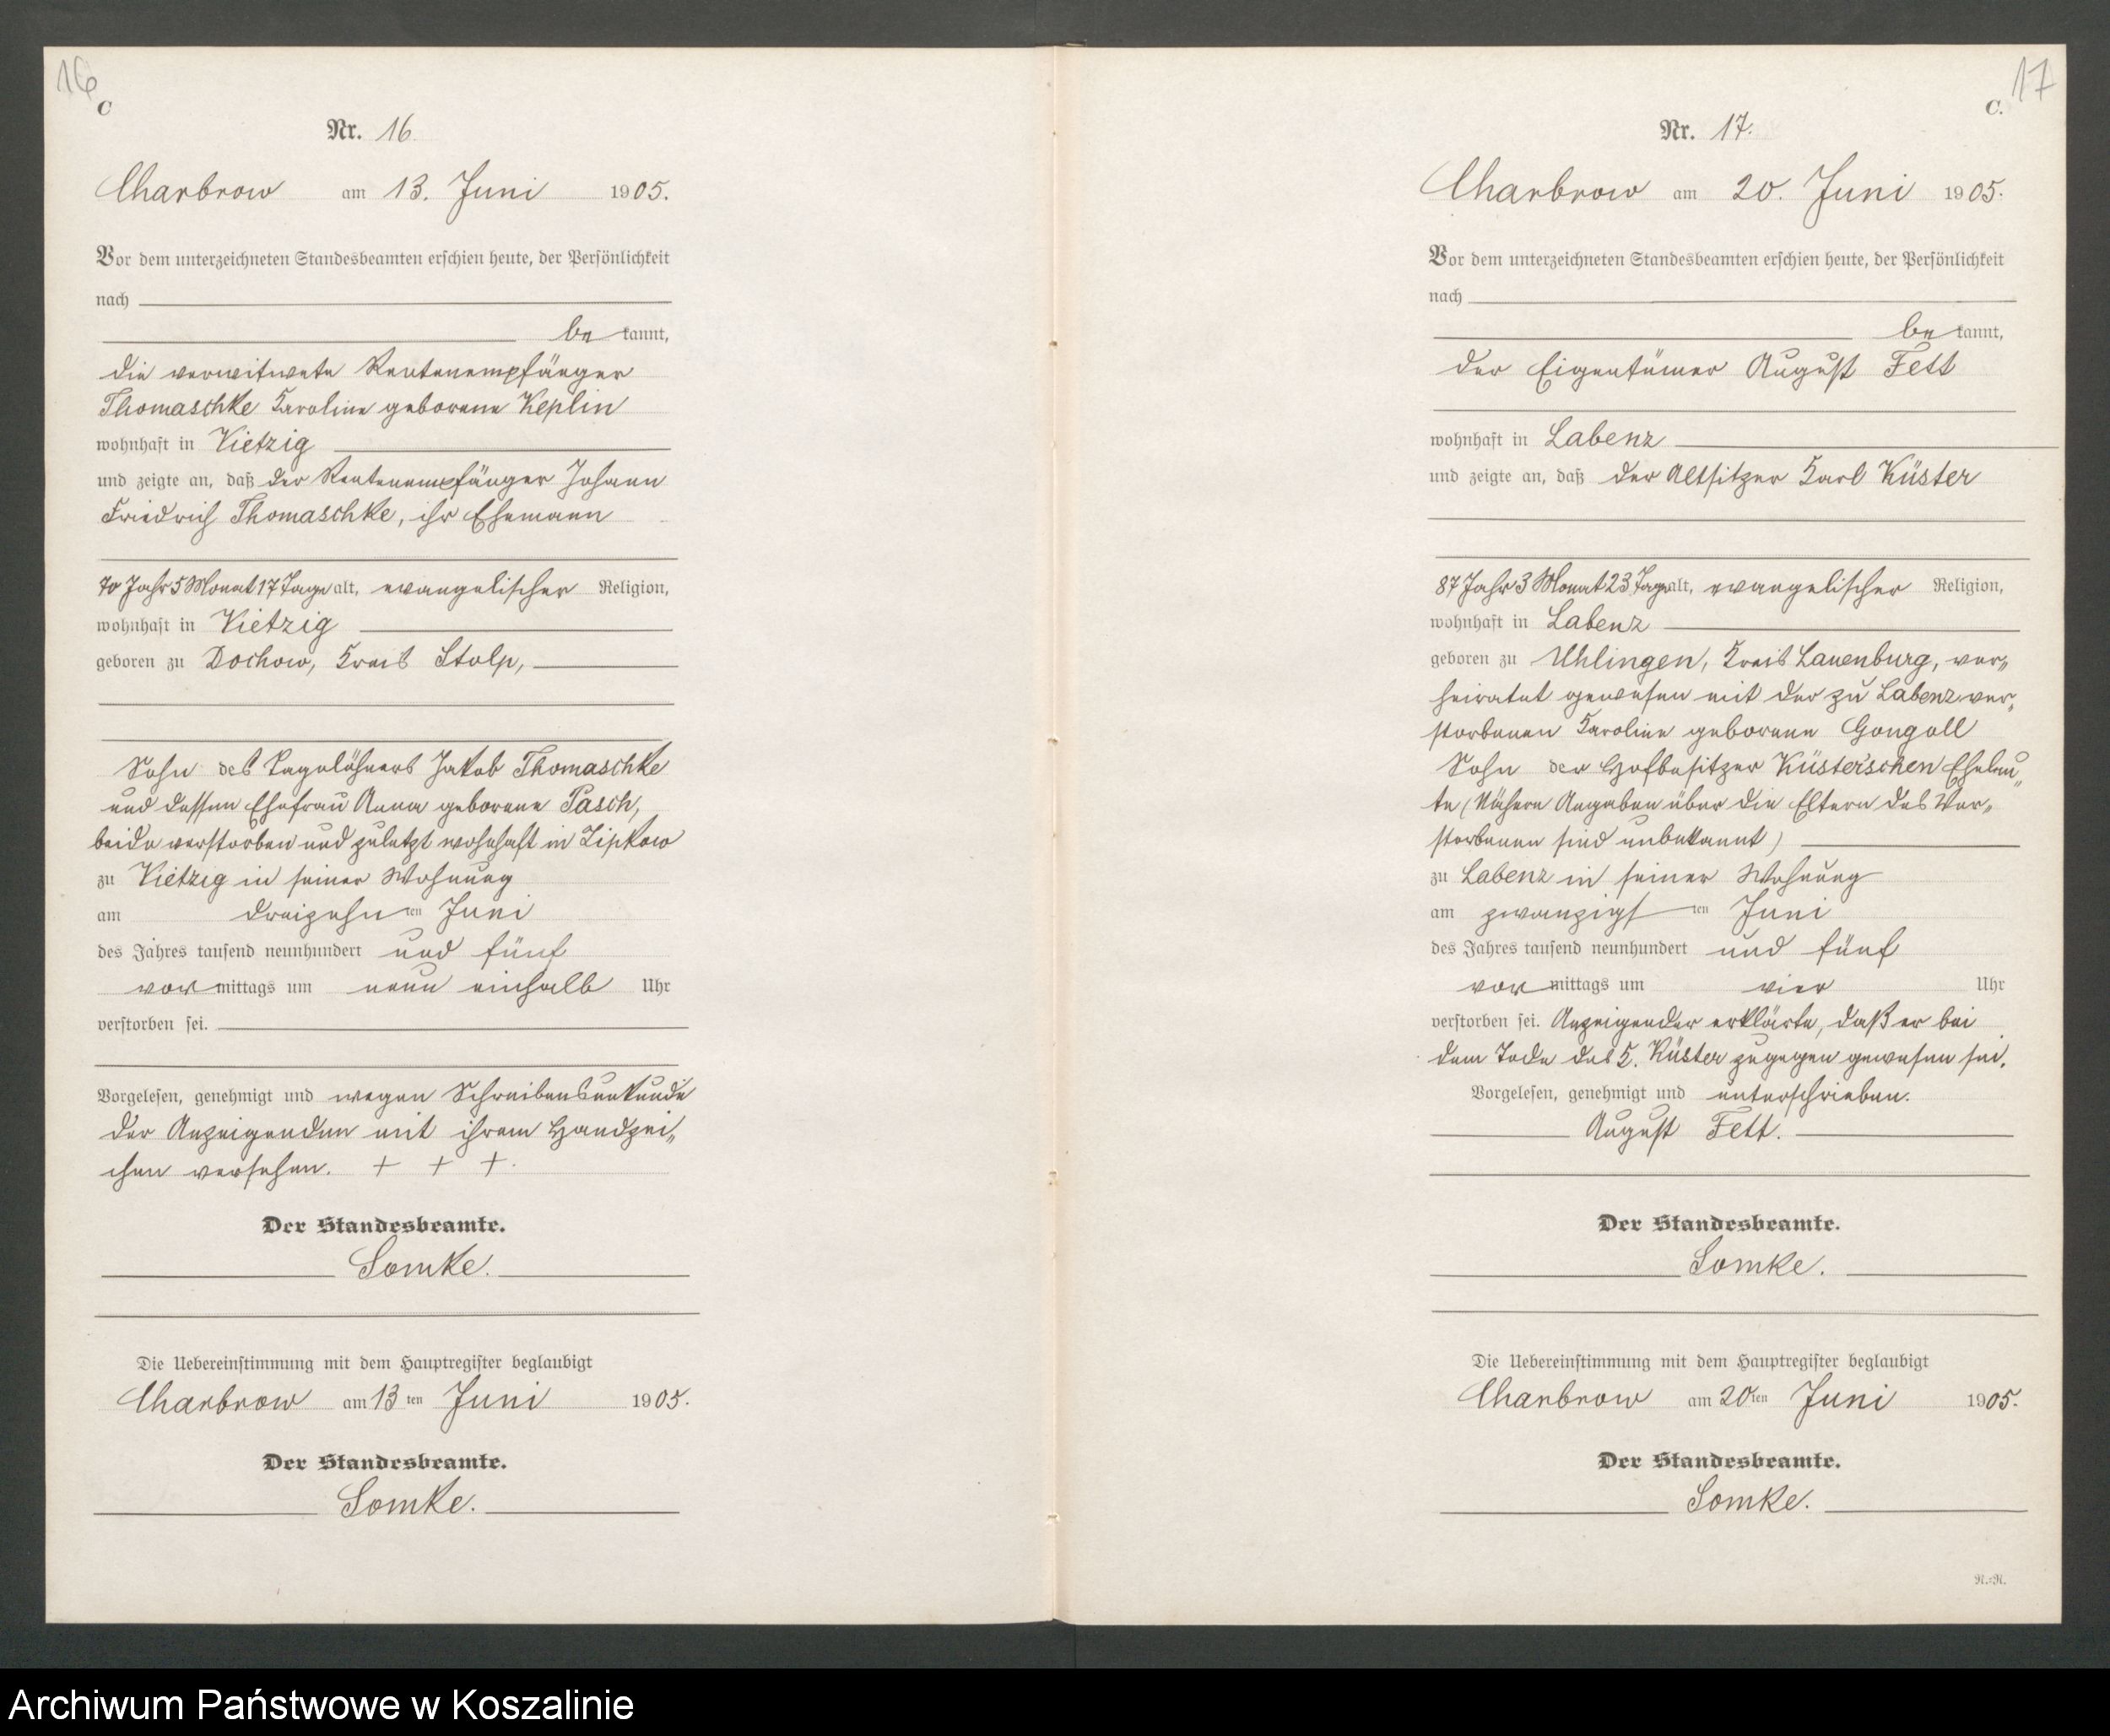 16
C
Nr. 16.
Charbrow am 13. Juni 1905.
Vor dem unterzeichneten Standesbeamten erschien heute, der Persönlichkeit
nach
be kannt,
die verwitwete Rentenempfänger
Thomaschke Karoline geborene Keplin
wohnhaft in Vietzig
und zeigte an, daß der Rentenempfänger Johann
Friedrich Thomaschke, ihr Ehemann
70 Jahr 5 Monat 17 Tage alt, evangelischer Religion,
wohnhaft in Vietzig
geboren zu Dochow, Kreis Stolp,
Sohn des Tagelöhners Jakob Thomaschke
und dessen Ehefrau Anna geborene Pasch,
beide verstorben und zuletzt wohnhaft in Zipkow
zu Vietzig in seiner Wohnung
am dreizehn ten Juni
des Jahres tausend neunhundert und fünf
vor mittags um neun einhalb Uhr
verstorben sei.
Vorgelesen, genehmigt und wegen Schreibensunkunde
der Anzeigenden mit ihrem Handzei„
chen versehen. + + +.
Der Standesbeamte.
Somke.
Die Uebereinstimmung mit dem Hauptregister beglaubigt
Charbrow am 13 ten Juni 1905.
Der Standesbeamte.
Somke.
17
C.
Nr. 17.
Charbrow am 20. Juni 1905.
Vor dem unterzeichneten Standesbeamten erschien heute, der Persönlichkeit
nach
be kannt,
der Eigentümer August Fett
wohnhaft in Labenz
und zeigte an, daß der Altsitzer Karl Küster
87 Jahr 3 Monat 23 Tage alt, evangelischer Religion,
wohnhaft in Labenz
geboren zu Uhlingen, Kreis Lauenburg, ver„
heiratet gewesen mit der zu Labenz ver„
storbenen Karoline geborene Gongoll
Sohn der Hofbesitzer Küster'schen Eheleu„
te (Nähere Angaben über die Eltern des Ver„
storbenen sind unbekannt)
zu Labenz in seiner Wohnung
am zwanzigs ten Juni
des Jahres tausend neunhundert und fünf
vor mittags um vier Uhr
verstorben sei. Anzeigender erklärte, daß er bei
dem Tode des K. Küster zugegen gewesen sei.
Vorgelesen, genehmigt und unterschrieben.
August Fett.
Der Standesbeamte.
Somke.
Die Uebereinstimmung mit dem Hauptregister beglaubigt
Charbrow am 20 ten Juni 1905.
Der Standesbeamte.
Somke.
N.=N.
Archiwum Państwowe w Koszalinie